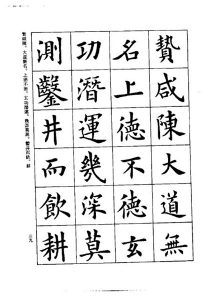 贊咸陳大道無
名上德不德玄
功潛運幾深莫
測鑿井而飲耕
贊咸陳。大道無名，上德不德。玄功潛運，幾深莫測。鑿井而飲，耕